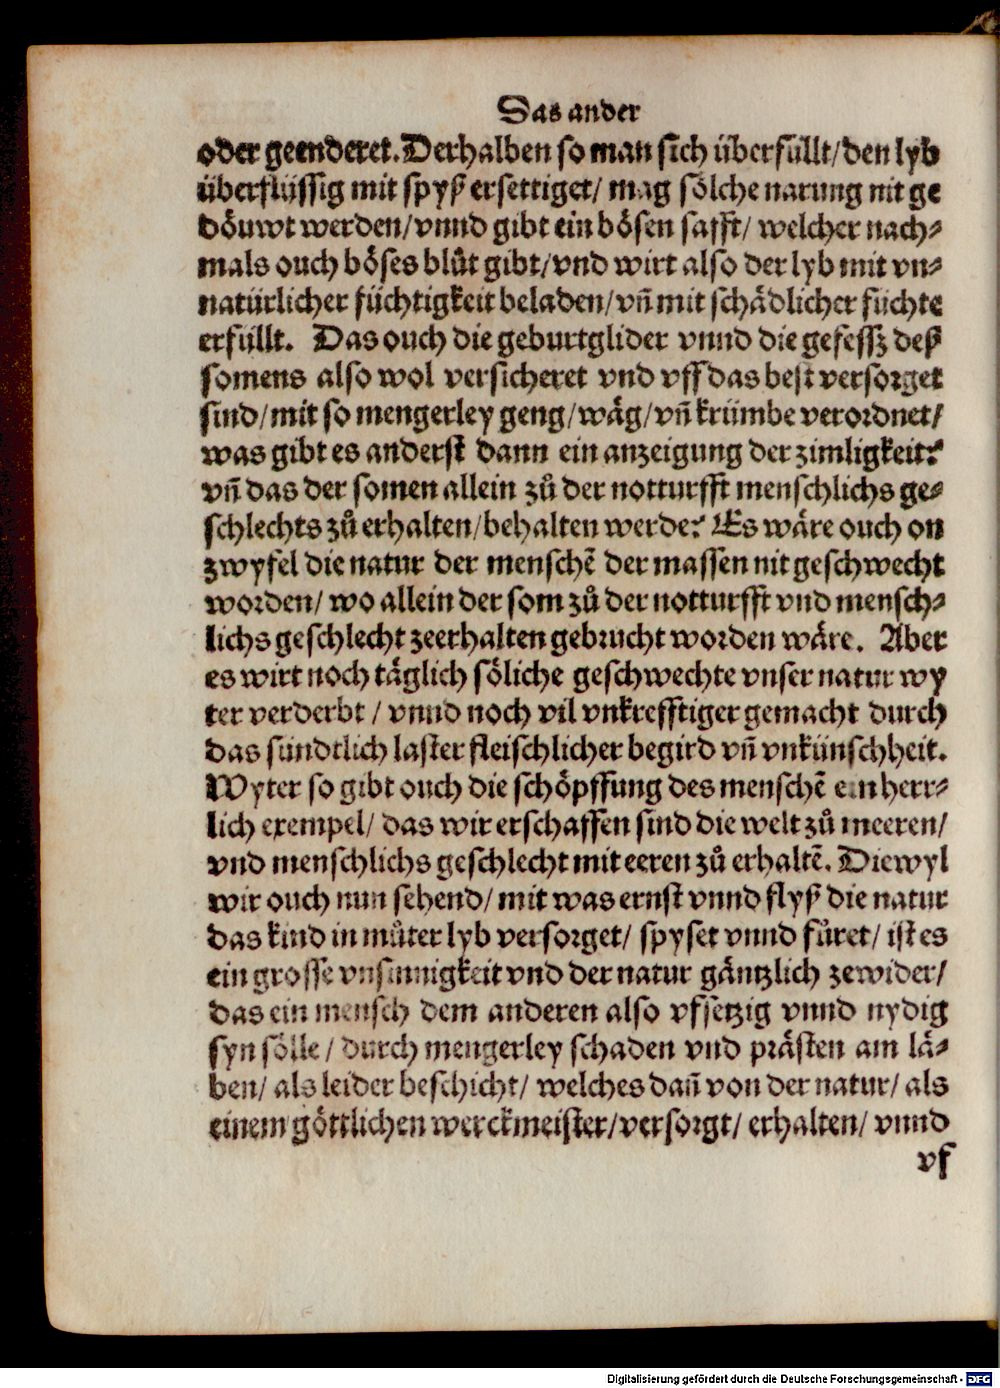 Das ander
oder geenderet. Derhalben so man sich überfüllt/den lyb
überflüssig mit spyß ersettiget/ mag sölche narung nit ge
döuwt werden/vnnd gibt ein bösen safft/ welcher nach⸗
mals ouch böses blůt gibt/vnd wirt also der lyb mit vn⸗
natürlicher füchtigkeit beladen/vñ mit schädlicher füchte
erfüllt. Das ouch die geburtglider vnnd die gefessz deß
somens also wol versicheret vnd vff das best versorget
sind/mit so mengerley geng/wäg/vñ krümbe verordnet/
was gibt es anderst dann ein anzeigung der zimligkeit?
vñ das der somen allein zů der notturfft menschlichs ge⸗
schlechts zů erhalten/behalten werde? Es wäre ouch on
zwyfel die natur der menschẽ der massen nit geschwecht
worden/ wo allein der som zů der notturfft vnd mensch⸗
lichs geschlecht zeerhalten gebrucht worden wäre. Aber
es wirt noch täglich söliche geschwechte vnser natur wy
ter verderbt / vnnd noch vil vnkrefftiger gemacht durch
das sündtlich laster fleischlicher begird vñ vnkünschheit.
Wyter so gibt ouch die schöpffung des menschẽ ein herr⸗
lich exempel/ das wir erschaffen sind die welt zů meeren/
vnd menschlichs geschlecht mit eeren zů erhaltẽ. Diewyl
wir ouch nun sehend/ mit was ernst vnnd flyß die natur
das kind in můter lyb versorget/ spyset vnnd fůret/ ist es
ein grosse vnsinnigkeit vnd der natur gäntzlich zewider/
das ein mensch dem anderen also vfsetzig vnnd nydig
syn sölle / durch mengerley schaden vnd prästen am lä⸗
ben/ als leider beschicht/ welches dañ von der natur/ als
einem göttlichen werckmeister/versorgt/ erhalten/ vnnd
vf
Digitalisierung gefördert durch die Deutsche Forschungsgemeinschaft - DFG